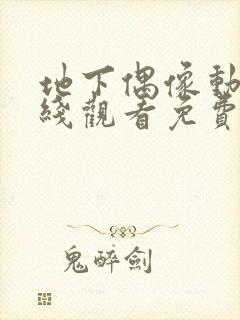 地下偶像動
綫觀看免費
鬼醉劍